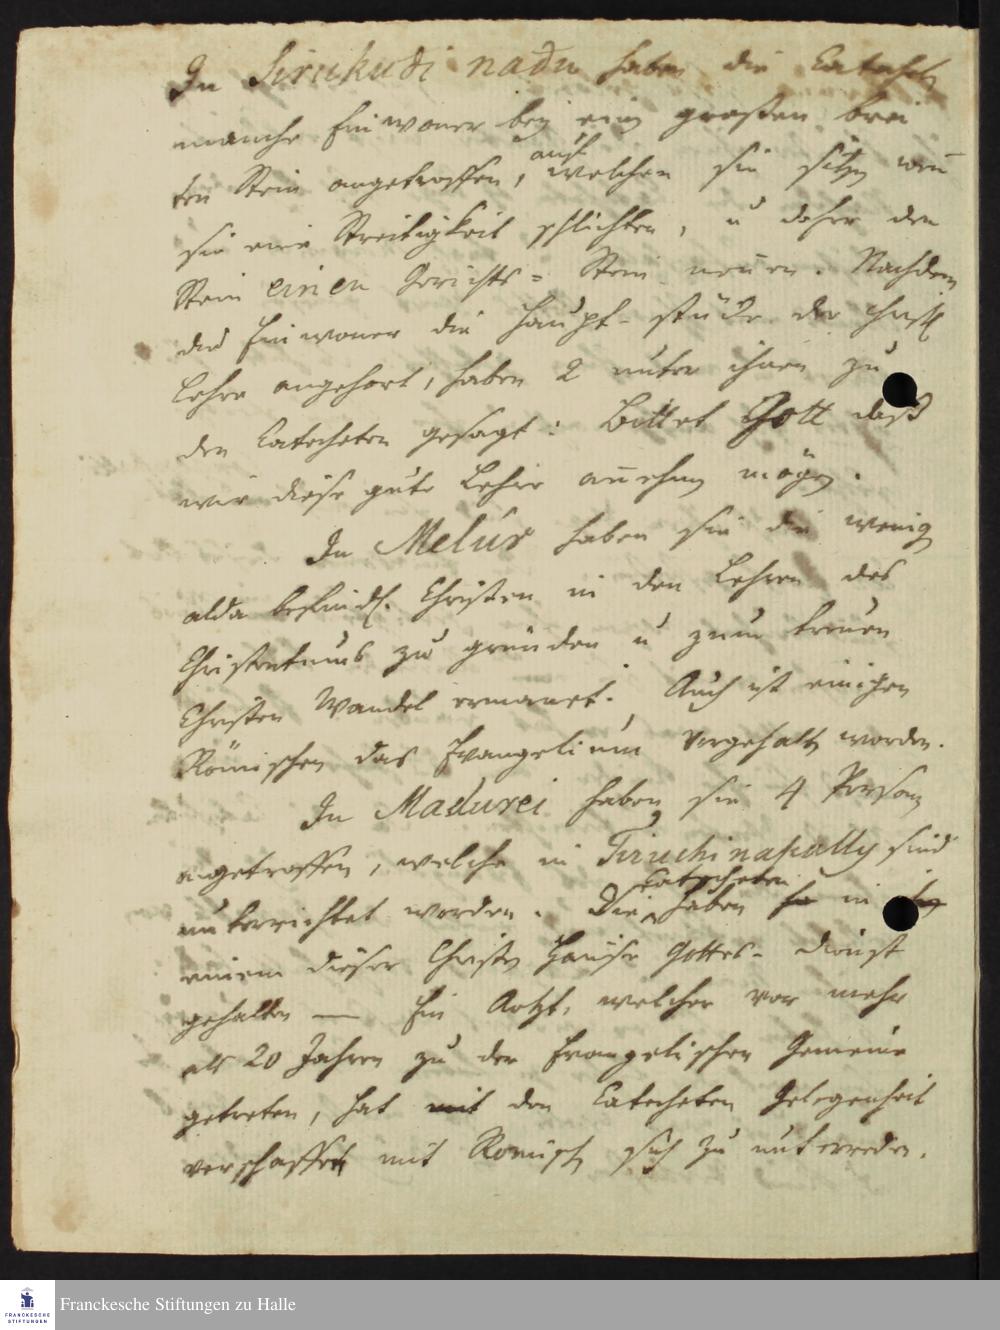 In Sirukudi nadu haben die Catechet
manche Einwoner bey ein grossen brei
ten Stein angetroffen, auf welchen sie sitzen wen̄
sie eine Streitigkeit schlichten, u daher den
Stein einen Gerichts-Stein nennen. Nachdem
die Einwoner die Haupt-stücke der Christl
Lehre angehort, haben 2 unter ihnen zu
den Catecheten gesagt: Bittet Gott daß
wir diese gute Lehre an̄ehmen mögen.
In Melur haben sie die wenig
alda befindl. Christen in den Lehren des
Christentums zu gründen u zum treuen
Christen Wandel ermanet. Auch ist einigen
Römischen das Evangelium vorgehalten worden.
In Madurei haben sie 4 Personen
angetroffen, welche in Tiruchinapally sind
unterrichtet worden. Die Catecheten haben in
einem dieser Christen Hause Gottes-dienst
gehalten — Ein Artzt, welcher vor mehr
als 20 Jahren zu der Evangelischen Gemeine
getreten, hat den Catecheten Gelegenheit
verschaffet mit Römisch sich zu unterreden.
Franckesche Stiftungen zu Halle
FRANCKESCHE
STIFTUNGEN